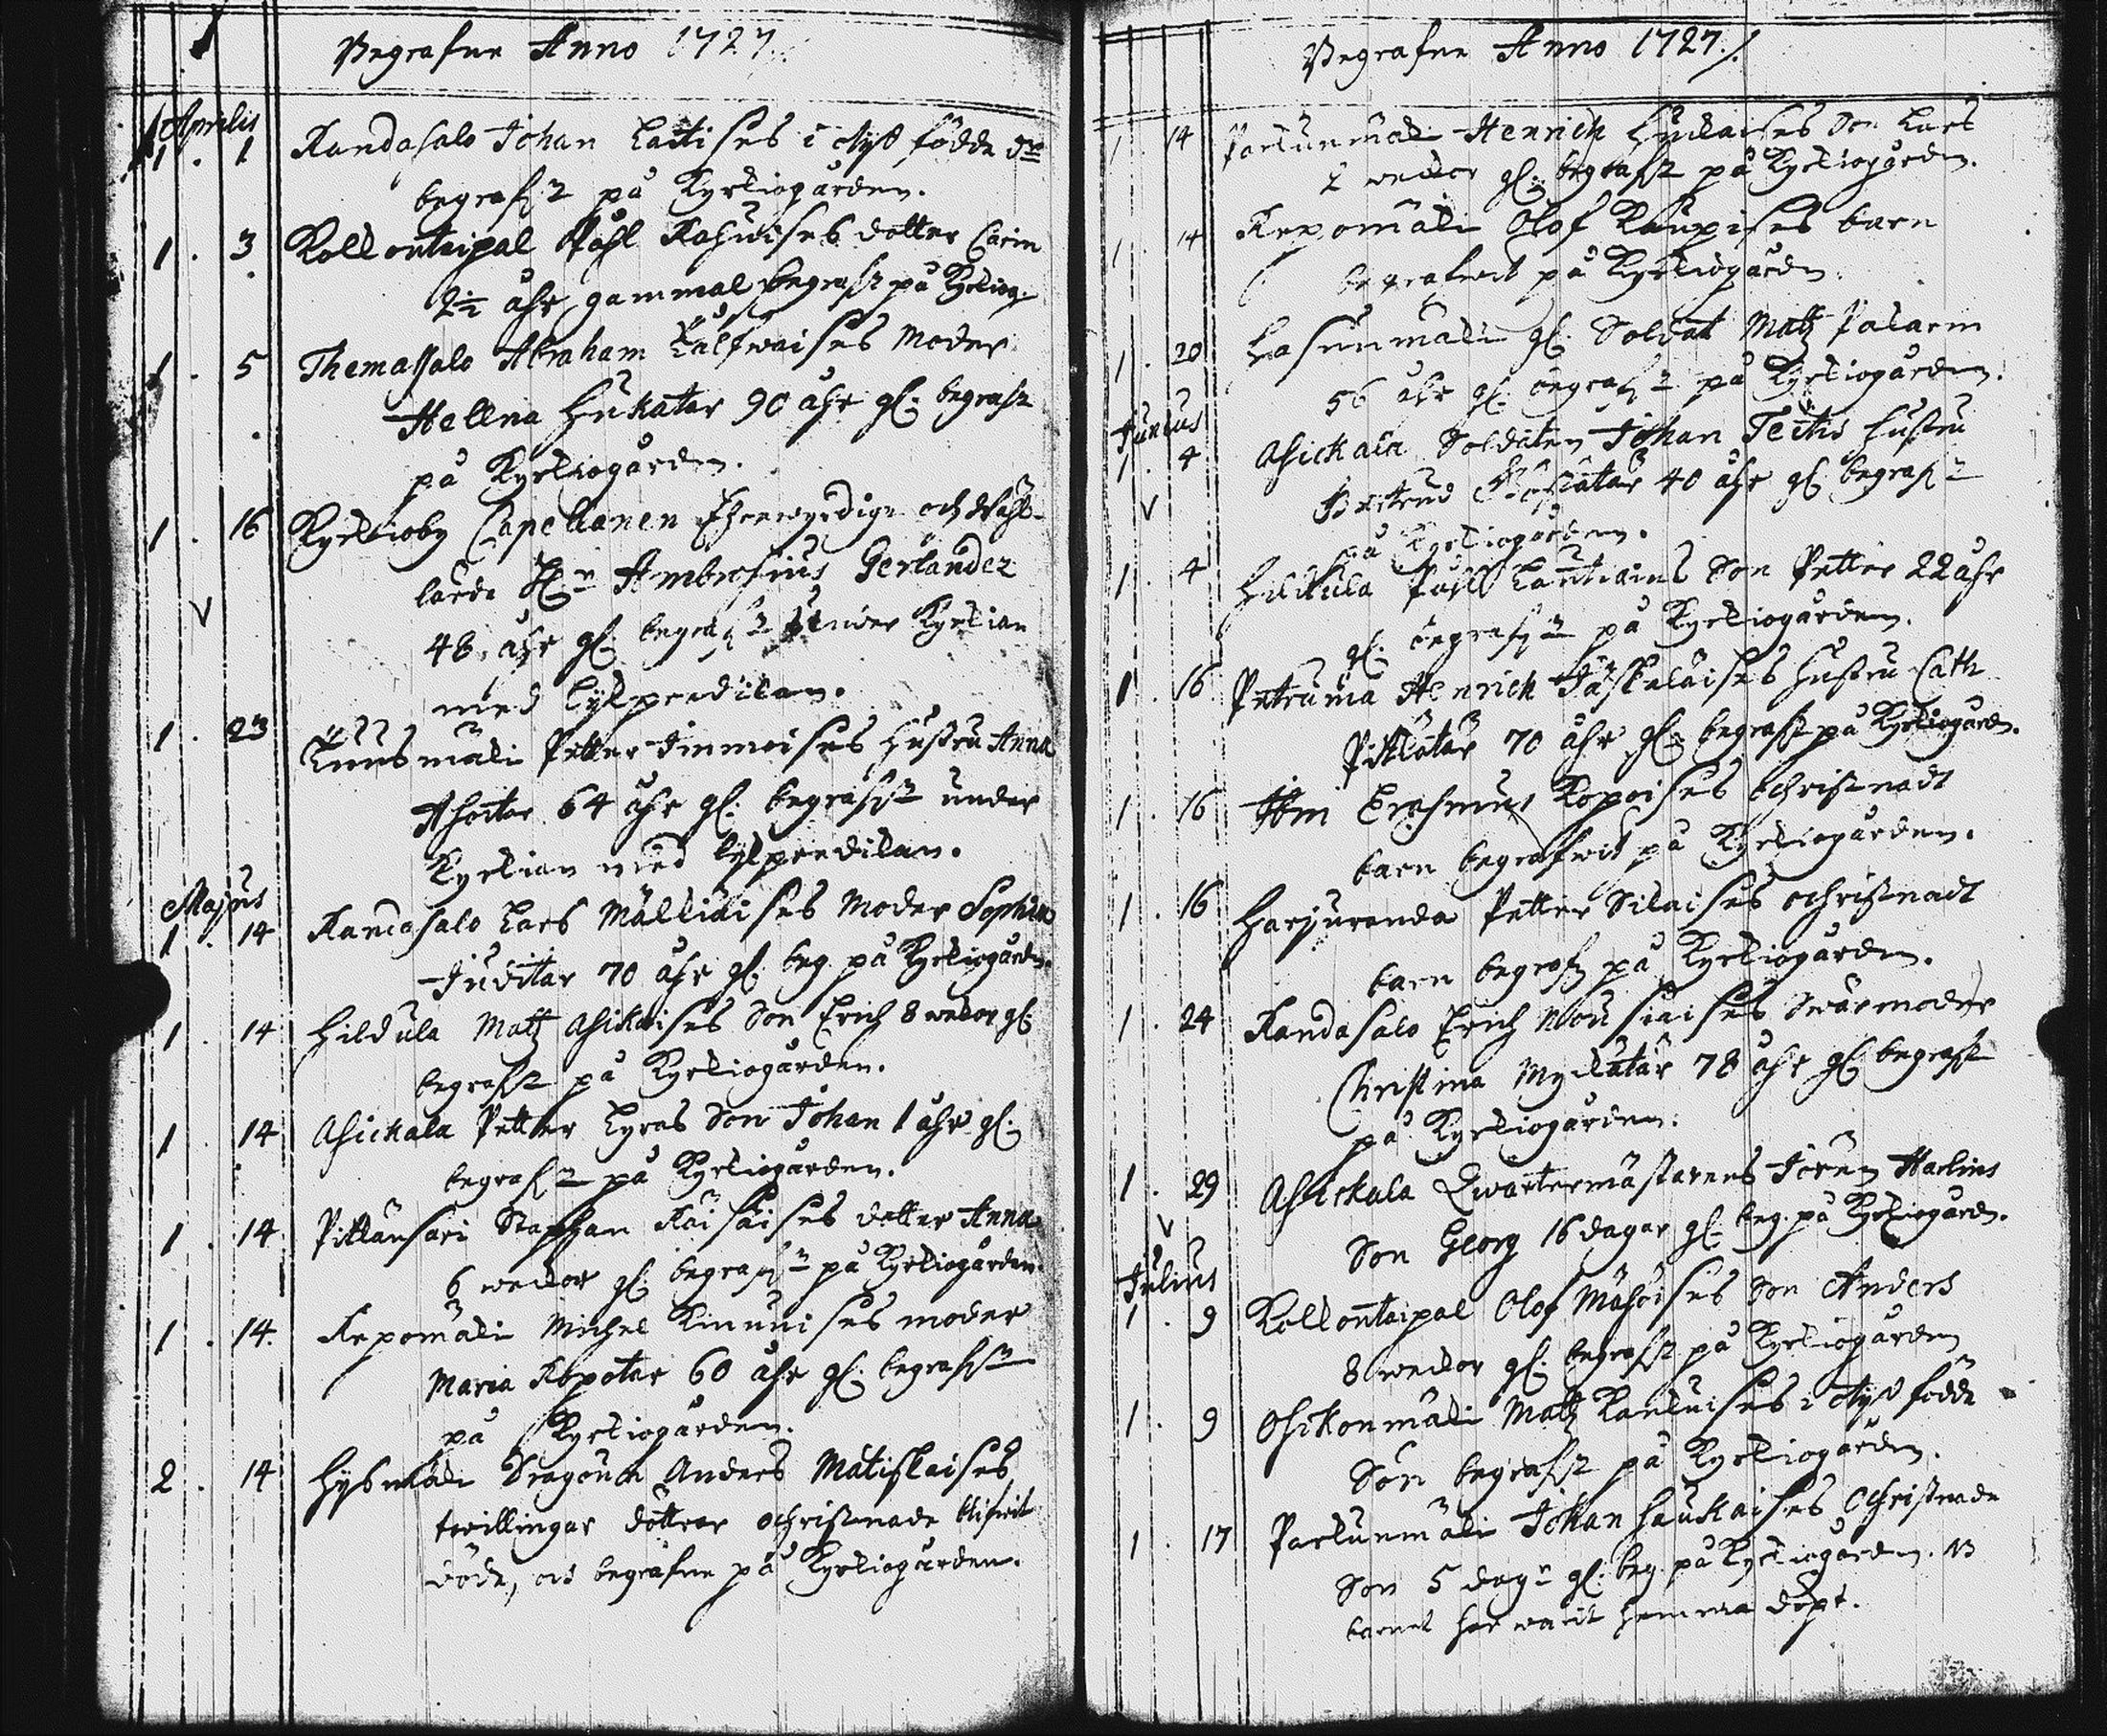 Begrafne Anno 1727.
Aprilis
1 . 1 Randasalo Johan Lattises i Nyß födde
begrafz på Kyrkiogården.
1 . 3 Kollontaipal Påhl Rahuises dotter Carin
2½ åhr gammal begrafz på Kyrkiog.
1 . 5 Themassalo Abraham Kälfwäises Moder
Hellna Hukatar 90 åhr gl. begrafz
på Kyrkiogården.
1 . 16 Kyrkioby Capellanen Ehrewyrdige och Wähl-
lärde Hr Ambrosius Gerlander
48 åhr gl. begrafz under Kyrkian
med Lijkpredikan.
1 . 23 Kuusmäki Petter Immoises hustru Anna
Ahotar 64 åhr gl. begrafz under
Kyrkian med Lijkpredikan.
Majus
1 . 14 Randasalo Lars Mällidises Moder Sophia
Juditar 70 åhr gl. beg. på Kyrkiogården.
1 . 14 Hildula Matz Asikaises Son Erich 8 wekor gl.
begrafz på Kyrkiogården.
1 . 14 Asickala Petter Lyras Son Johan 1 åhr gl.
begrafz på Kyrkiogården.
1 . 14 Pitkänsari Staphan Räisäises dotter Anna
6 weckor gl. begrafz på Kyrkiogården.
1 . 14. Repomäki Michel Kinnuises moder
Maria Ropotar 60 åhr gl. begrafz
på Kyrkiogården.
2 . 14 Hysmäki Dragoun Anders Matiskaises
twillingar döttrar ochristnade blifwit
döde, och begrafne på Kyrkiogården.
Begrafne Anno 1727.
1 . 14 Parkunmäki Henrich Hyvläises Son Lars
2 weckor gl. begrafz på Kyrkiogården.
1 . 14 Repomäki Olof Kaupises barn
begrafwit på Kyrkiogården.
1 . 20 Hasunmäki gl. Soldat Matz Palain
56 åhr gl. begrafz på Kyrkiogården.
Junius
1 . 4 Asickala Soldaten Johan Teitis hustru
40 åhr gl. begrafz
på Kyrkiogården.
1 . 4 Hildula Påhl Lantiains Son Petter 22 åhr
gl. begrafz på Kyrkiogården.
1 . 16 Petruma Henrich Jäskeläises hustru Cath
Pitkätär 70 åhr gl. begrafz på Kyrkiogårdn.
1 . 16 Erasmus Kopoises ochristnadt
barn begrafwit på Kyrkiogården.
1 . 16 Harjuranda Petter Silaises ochristnadt
barn begrafz på Kyrkiogården.
1 . 24 Randasalo Erich Nousiaises Swärmoder
Christina Myckätär 78 åhr gl begrafz
på Kyrkiogården.
1 . 29 Asickala Qwartermästarens Jören Harlins
Son Georg 16 dagar gl. beg. på Kyrkiogårdn.
Julius
1 . 9 Kollontaipal Olof Mähöises Son Anders
8 weckor gl. begrafz på Kyrkiogården
1 . 9 Osikonmäki Matz Laukuises i Nyß födde
Son begrafz på Kyrkiogården.
1 . 17 Parkunmäki Johan Haukaises Ochristnade
Son 5 dagr gl. beg. på Kyrkiogården. NB
barnet har warit hemma döpt.